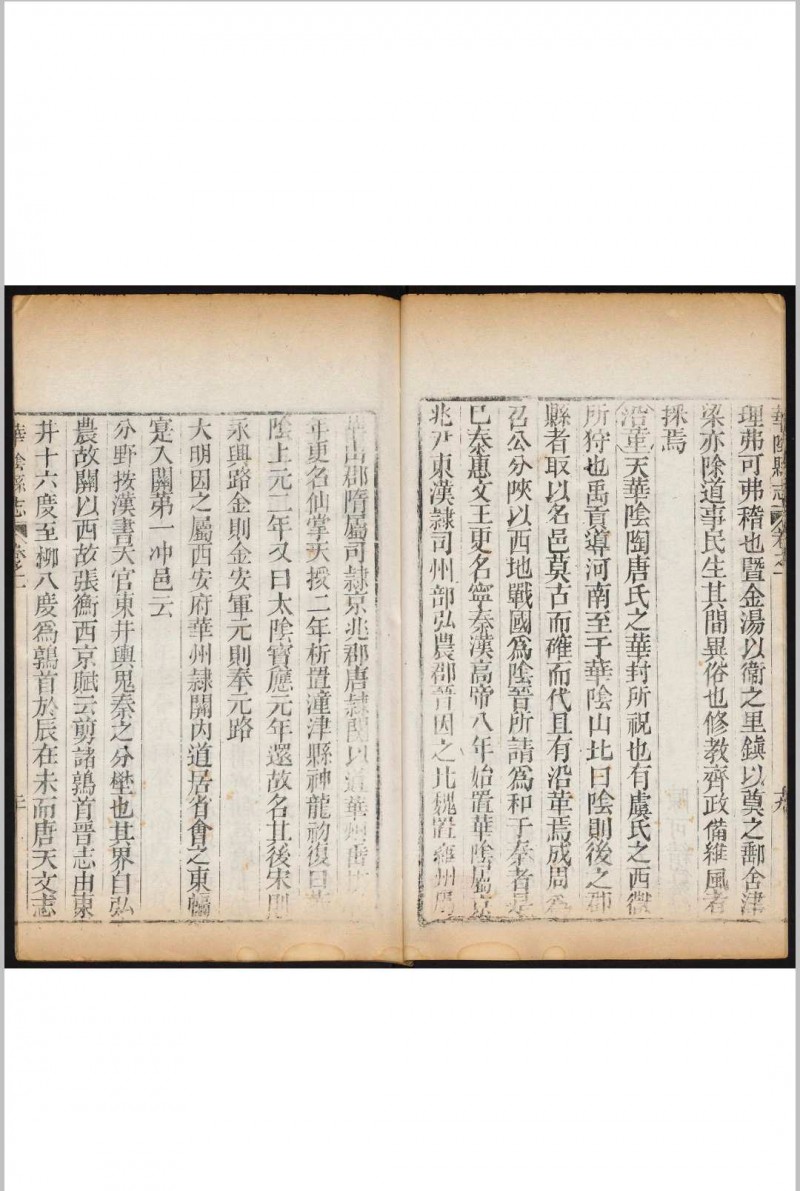 華陰縣志 卷之一
理弗可弗稽也暨金湯以衛之里鎮以奠之郵舍津
梁亦除道事民生其間異俗也修教齊政備維風者
採焉
沿革天華陰陶唐氏之華封所祝也有虞氏之西嶽
所狩也禹貢導河南至于華陰山北曰陰則後之郡
縣者取以名邑莫古而確而代且有沿革焉成周為
召公分陝以西地戰國爲陰晉所請爲和于秦者是
巳秦惠文王更名寧秦漢高帝八年始置華陰屬京
兆尹東漢隸司州部弘農郡晉因之北魏置雍州屬
華山郡隋屬司隸京兆郡唐隸關以道華州
年更名仙掌天授二年析置潼津縣神龍初復曰華
陰上元二年又曰太陰寶應元年還故名其後宋則
永興路金則金安軍元則奉元路
大明因之屬西安府華州隸關內道居省會之東幅
寔入關第一冲邑云
分野按漢書天官東井輿鬼秦之分壄也其界自弘
農故關以西故張衡西京賦云剪諸鶉首晉志由東
井十六度至栁八度爲鶉首於辰在未而唐天文志
華陰縣志 卷之一